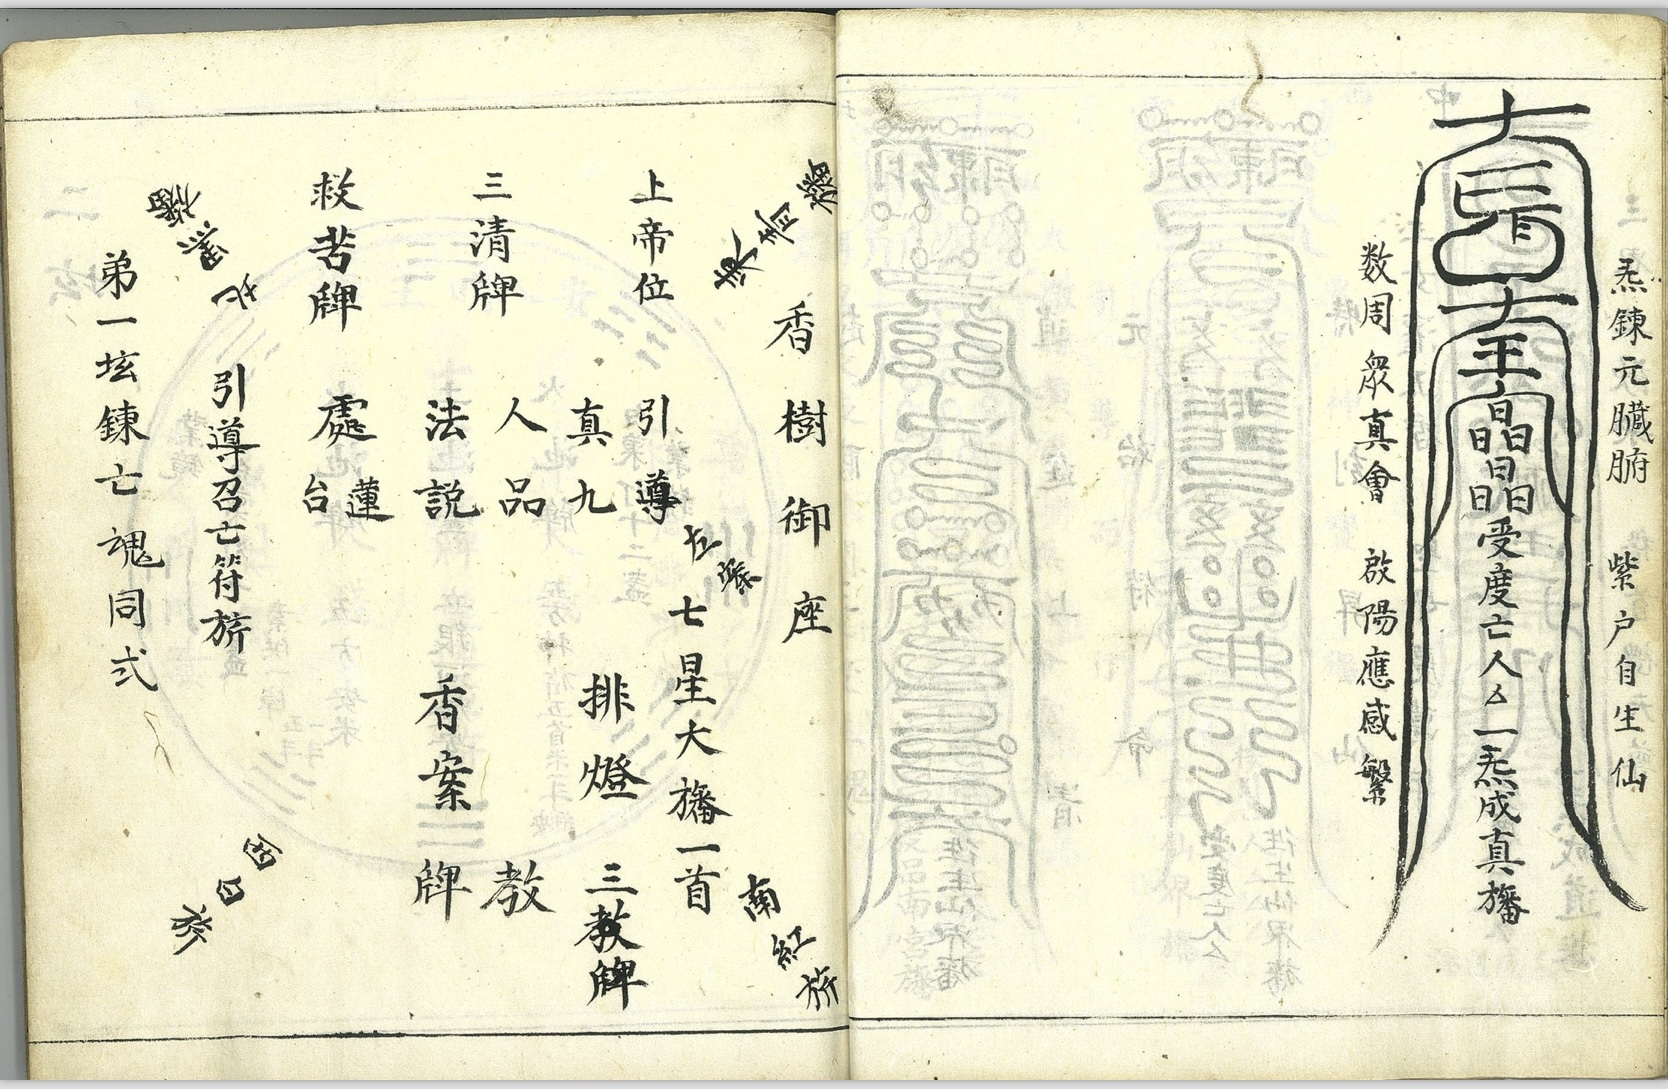 炁鍊元臟腑 紫户自生仙
受度亡人厶一炁成真旛
数周衆真會 啟陽應感繁
東青旛
香樹御座
上帝位
引導
七星大旛一首
南紅旂
三清牌
真九
人品
法説
排燈
三教牌
香案
教
牌
救苦牌
處
蓮
台
引導召亡符旂
北黑旛
西白旂
弟一坛鍊亡魂同式